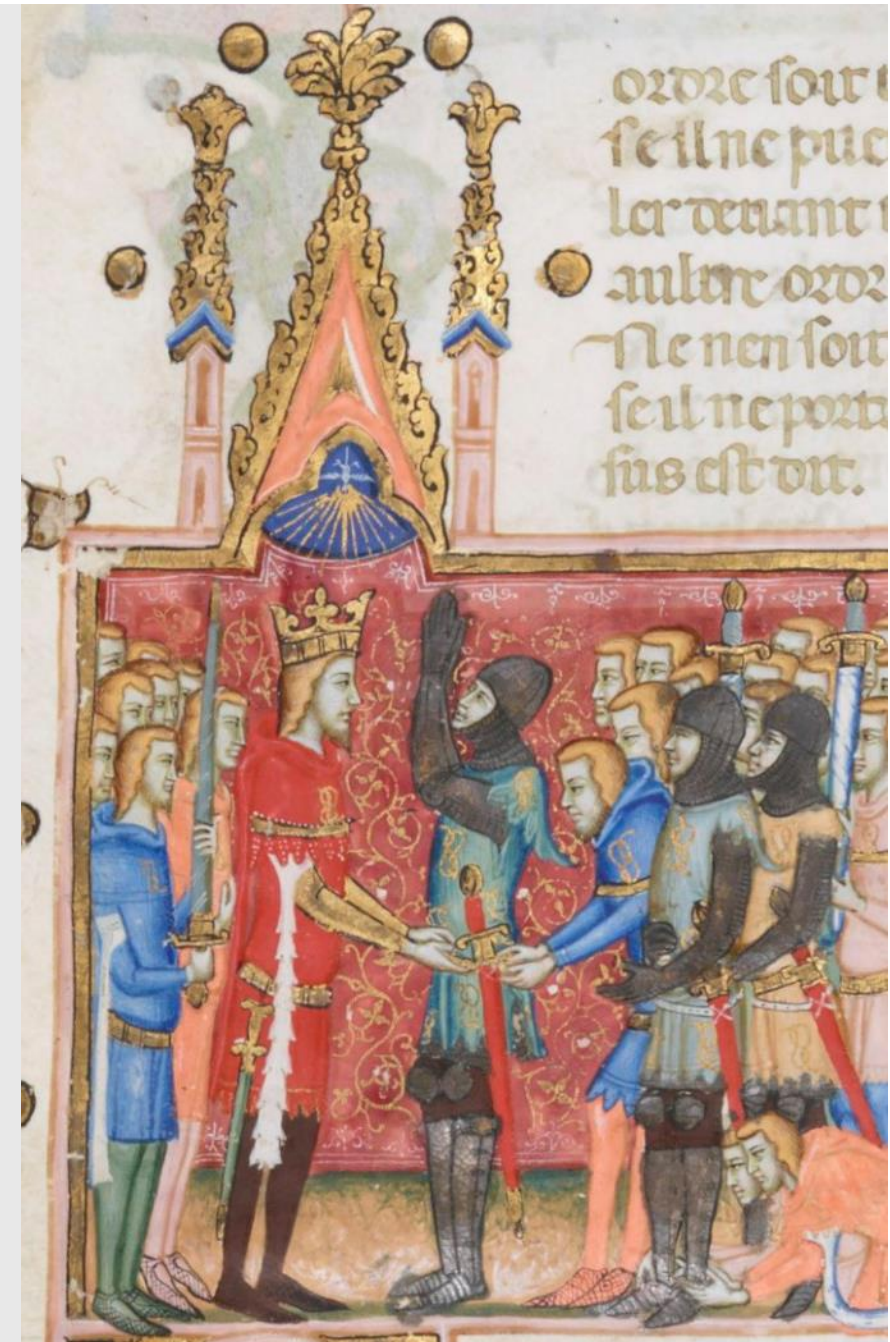 ordre soit
se il ne pue
ler devant
aultre ordr
Ne nen soit
se il ne port
sus est dit.